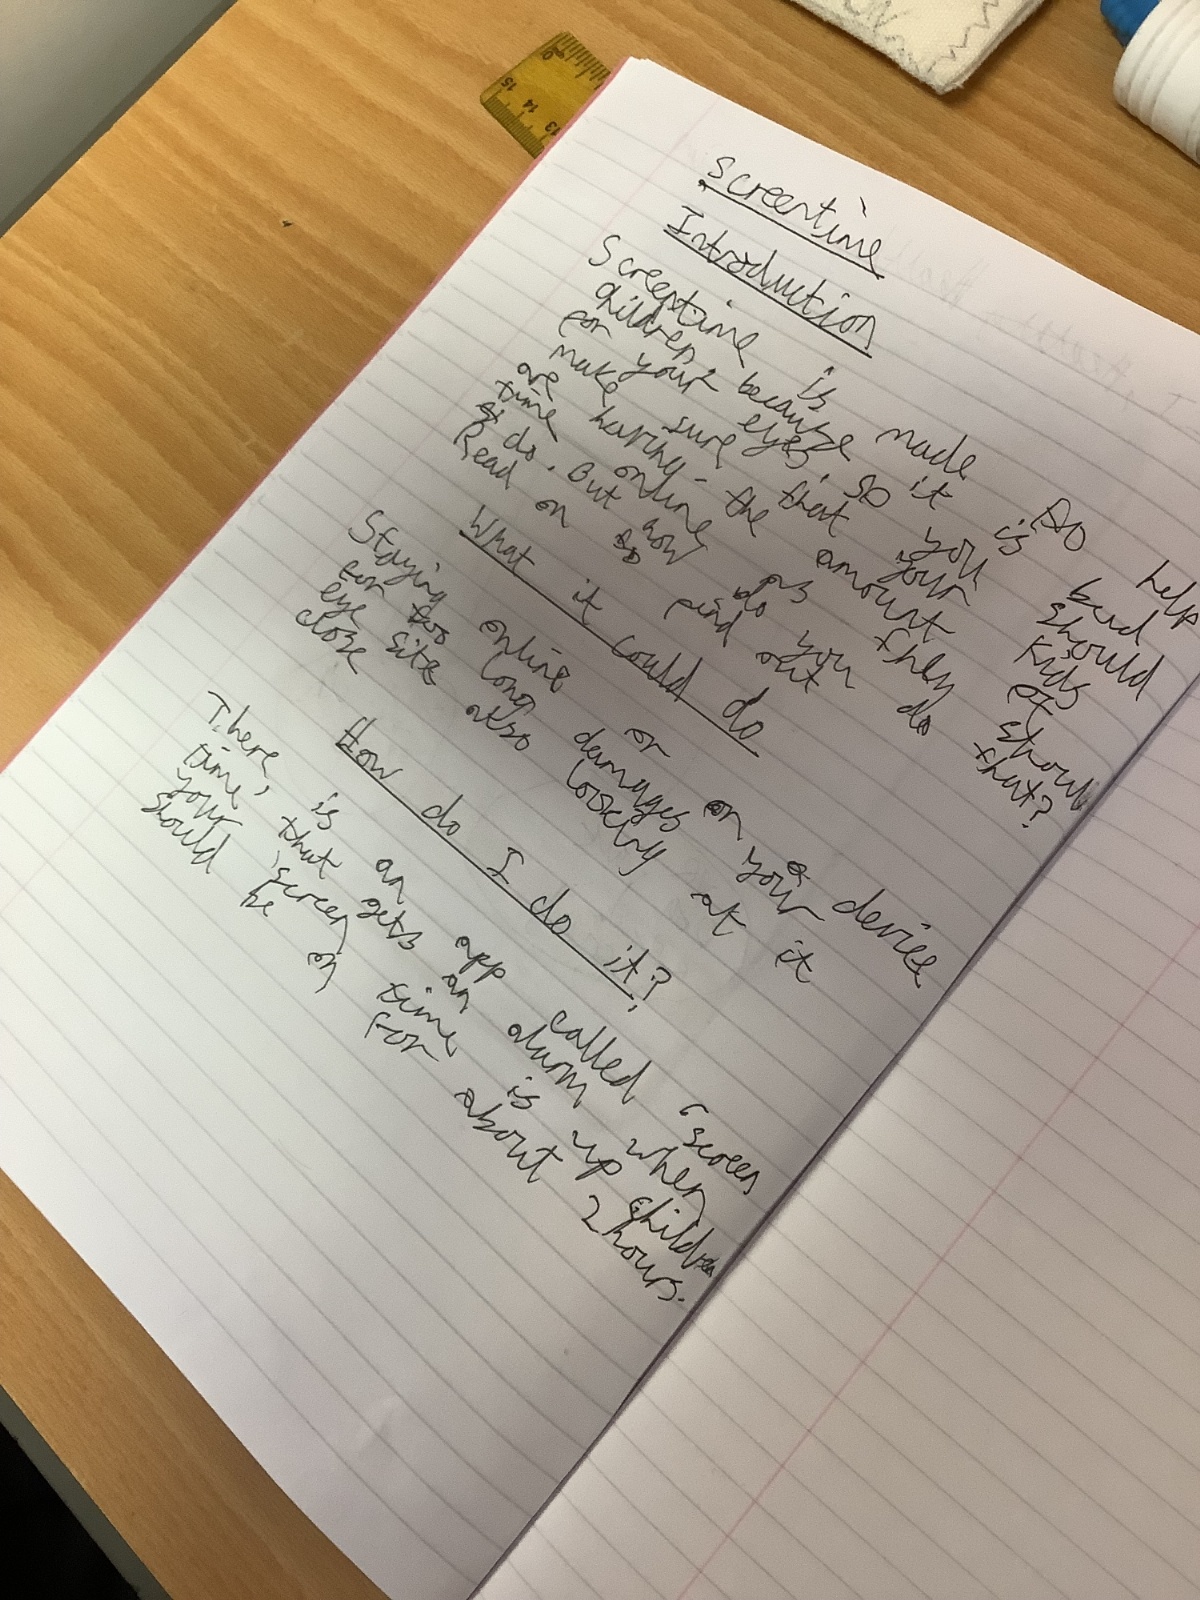 Screentime
Introduction
Screentime is made to help
children, because it is bad
for your eyes. so you should
make sure that your kids
are having the amount of
time online as they should
do. But how do you do that?
Read on to find out
What it could do
Staying online or on device
for too long damages your
eye site also looking at it
close
How do I do it?
There, is an app called "screen
time, that gets an alarm when
your screen time is up children
should be on for about 2 hours.
15
14
13
0